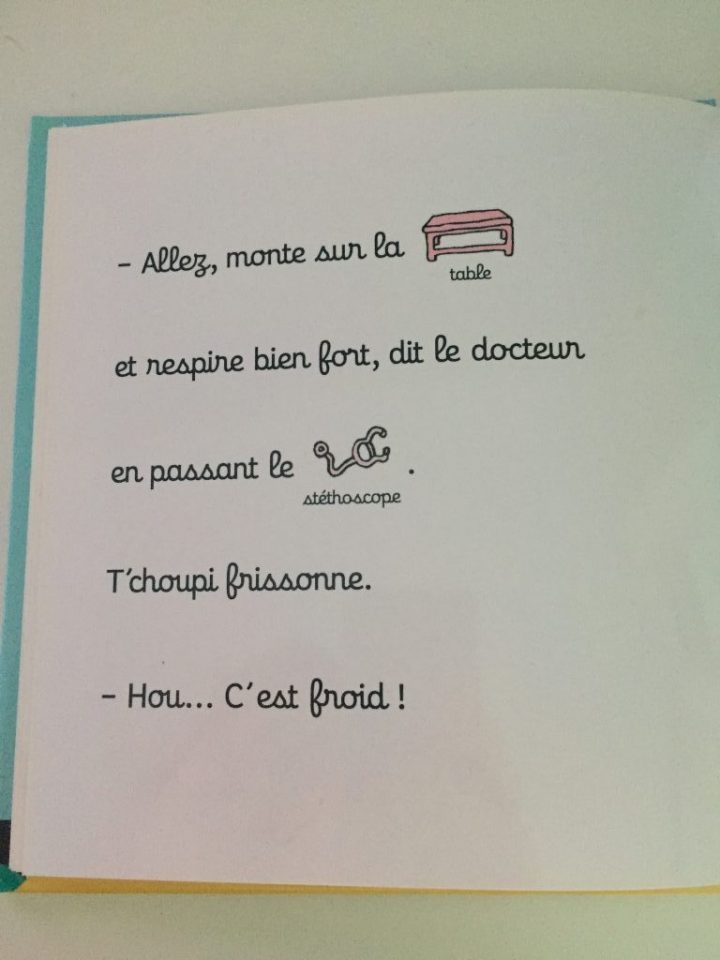 - Allez, monte sur la
table
et respire bien fort, dit le docteur
en passant le .
stéthoscope
T'choupi frissonne.
- Hou... C'est froid !